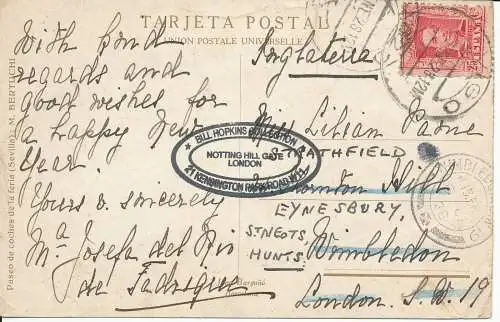 TARJETA POSTAL
UNION POSTALE UNIVERSELLE
With fond
regards and
good wishes for
a happy New
Year.
Yours v. sincerely
Mª Josefa del Rio
de Fadrique
Inglaterra
Miss Lilian Paine
STRATHFIELD
Thornton Hill
EYNESBURY,
ST NEOTS,
HUNTS.
Wimbledon
London. S.W. 19
BILL HOPKINS COLLECTION
NOTTING HILL GATE
LONDON
21 KENSINGTON PARK ROAD W.11
Paseo de coches de la feria (Sevilla)
M. BERTUCHI
ESPAÑA
25
Barcelona